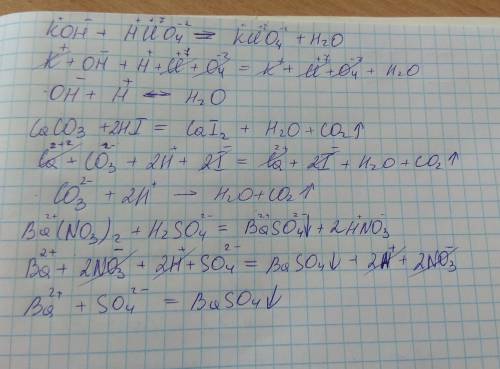 K⁺OH⁻ + H⁺Cl⁺⁷O₄⁻² = K⁺Cl⁺⁷O₄⁻² + H₂O
K⁺ + OH⁻ + H⁺ + Cl⁺⁷ + O₄⁻² = K⁺ + Cl⁺⁷ + O₄⁻² + H₂O
OH⁻ + H⁺ ↔ H₂O
CaCO₃ + 2HI = CaI₂ + H₂O + CO₂↑
Ca²⁺ + CO₃²⁻ + 2H⁺ + 2I⁻ = Ca²⁺ + 2I⁻ + H₂O + CO₂↑
CO₃²⁻ + 2H⁺ → H₂O + CO₂↑
Ba²⁺(NO₃)₂⁻ + H₂SO₄²⁻ = Ba²⁺SO₄²⁻↓ + 2H⁺NO₃⁻
Ba²⁺ + 2NO₃⁻ + 2H⁺ + SO₄²⁻ = BaSO₄↓ + 2H⁺ + 2NO₃⁻
Ba²⁺ + SO₄²⁻ = BaSO₄↓